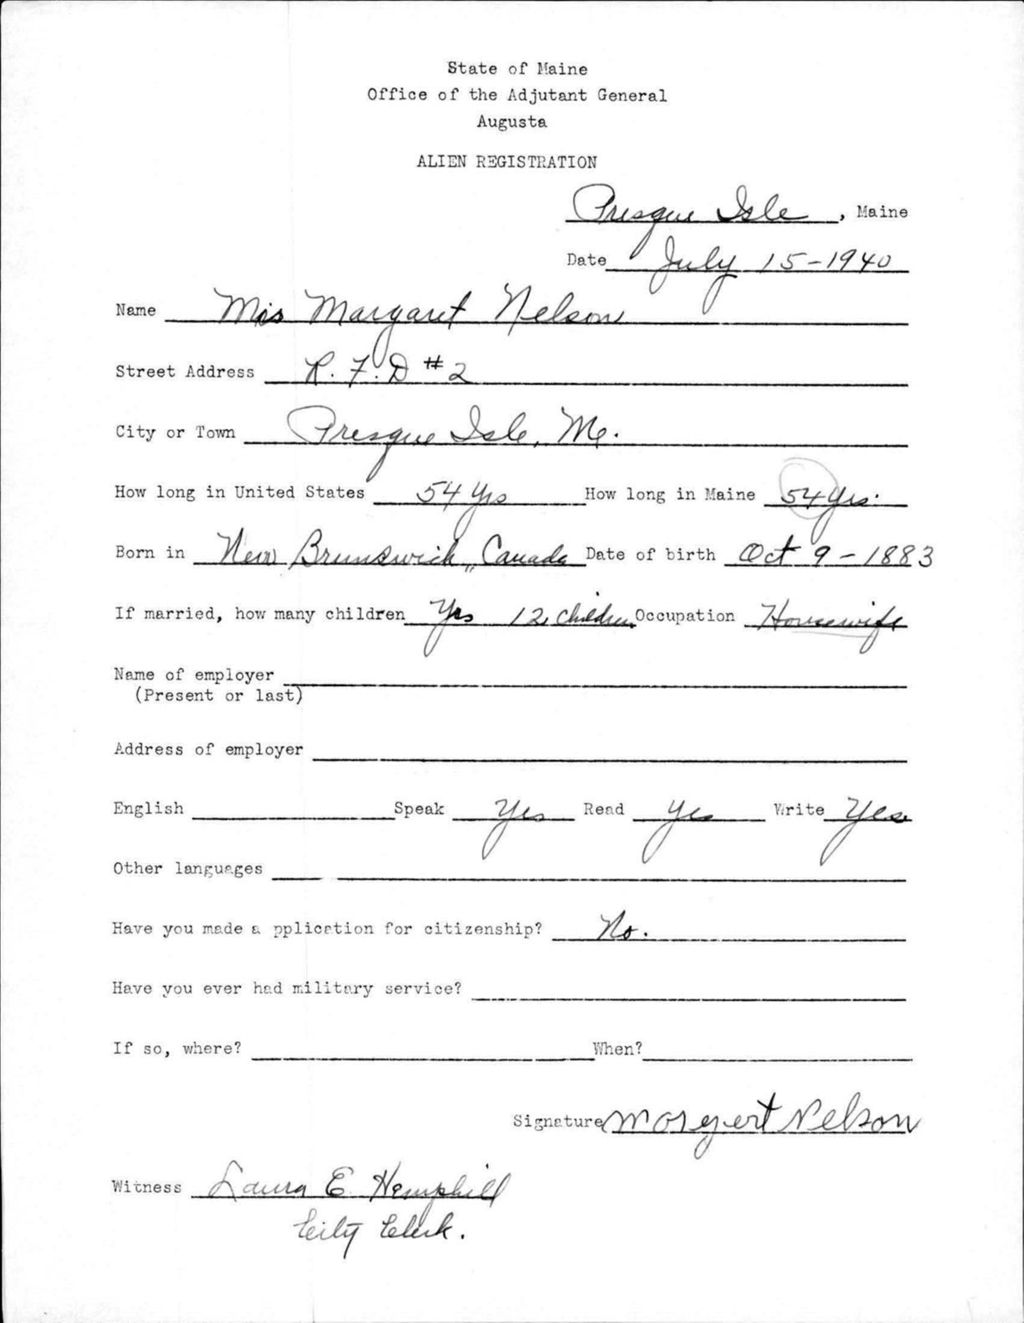 State of Maine
Office of the Adjutant General
Augusta
ALIEN REGISTRATION
Presque Isle, Maine
Date July 15-1940
Name Mrs Margaret Nelson
Street Address R.F.D #2
City or Town Presque Isle, Me.
How long in United States 54 Yrs How long in Maine 54 Yrs.
Born in New Brunswick, Canada Date of birth Oct 9-1883
If married, how many children Yes 12 children Occupation Housewife
Name of employer
(Present or last)
Address of employer
English Speak Yes Read Yes Write Yes
Other languages
Have you made a pplication for citizenship? No.
Have you ever had military service?
If so, where? When?
Signature Morgert Nelson
Witness Laura E Hemphill
City Clerk.